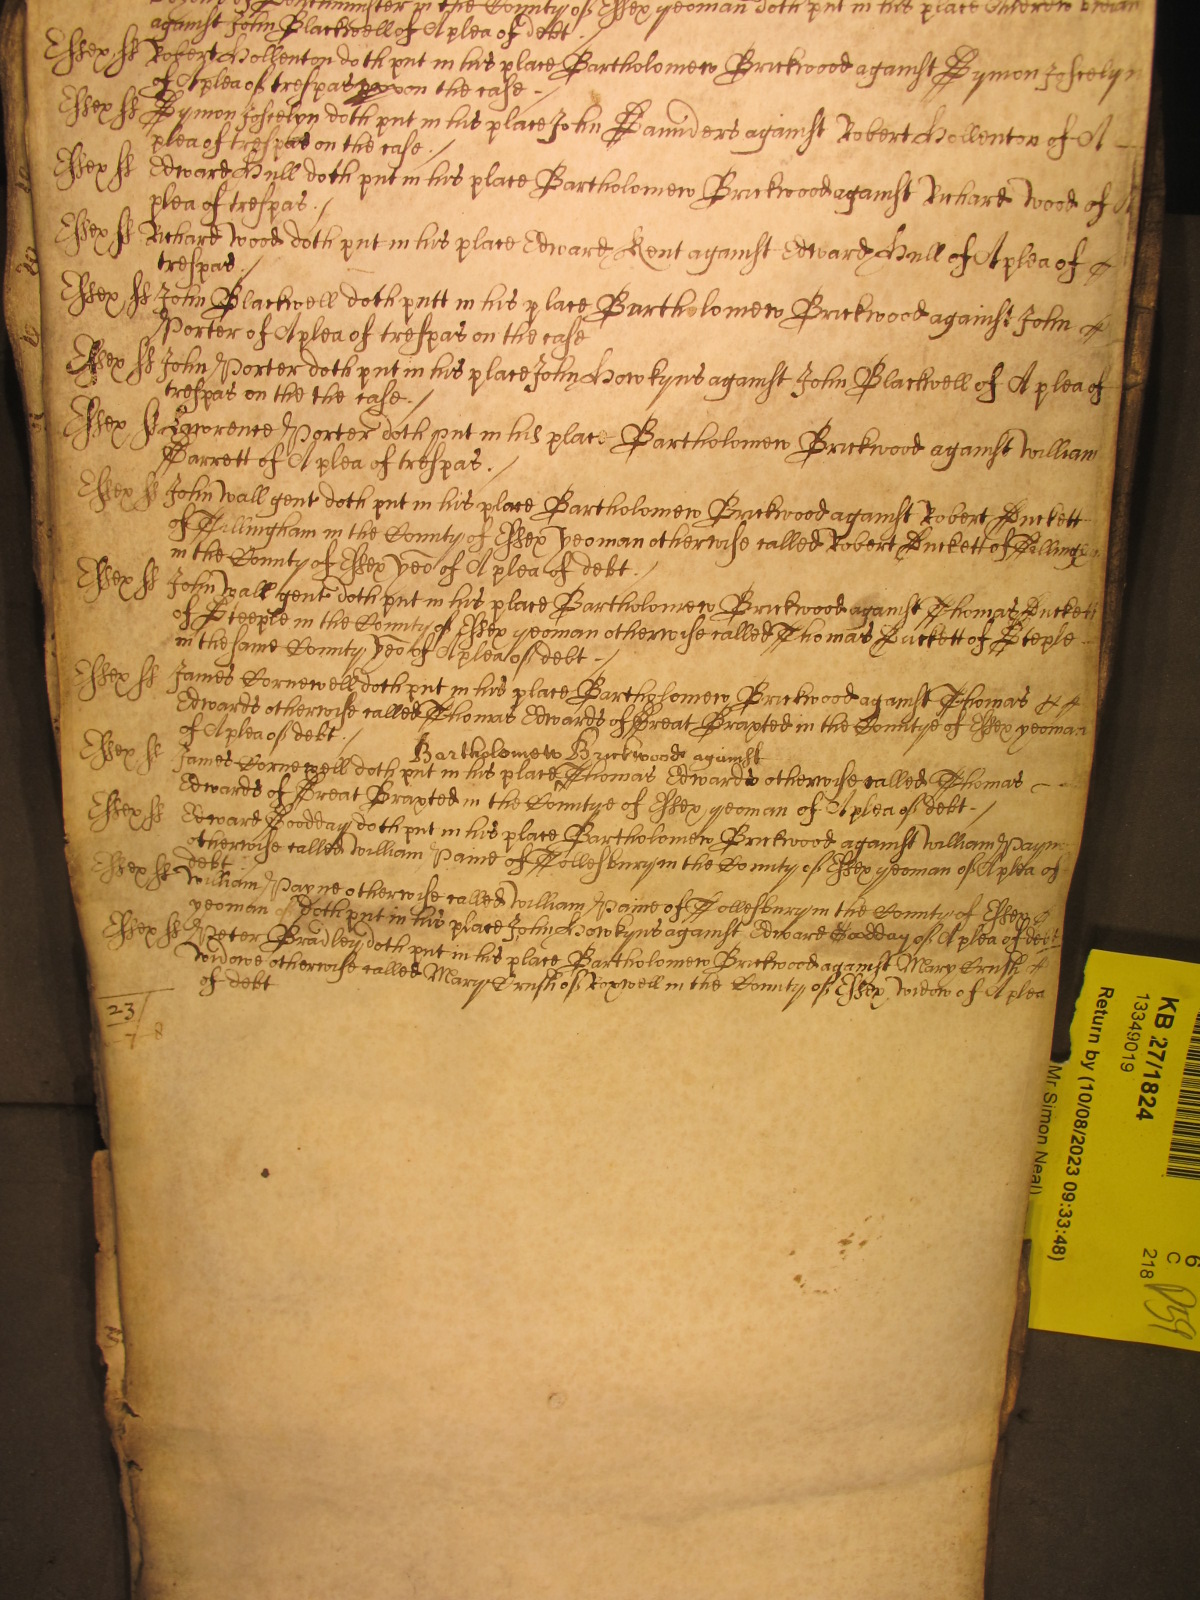 of Southminster in the County of Essex yeoman doth put in his place Andrew
against John Blackwell of A plea of debt ./
Essex ss Robert Hollenton doth put in his place Bartholomew Brickwood against Symon Joscelyn
of A plea of trespas upon the case -
Essex ss Symon Joscelyn doth put in his place John Saunders against Robert Hollenton of A
plea of trespas on the case ./
Essex ss Edward Hull doth put in his place Bartholomew Brickwood against Richard Wood of A
plea of trespas ./
Essex ss Richard Wood doth put in his place Edward Kent against Edward Hull of A plea of
trespas ./
Essex ss John Blackwell doth putt in his place Bartholomew Brickwood against John
Porter of A plea of trespas on the case
Essex ss John Porter doth put in his place John Howkyns against John Blackwell of A plea of
trespas on the the case ./
Essex ss Lawrence Porter doth put in his place Bartholomew Brickwood against William
Barrett of A plea of trespas ./
Essex ss John Wall gent doth put in his place Bartholomew Brickwood against Robert Buckett
of Tillingham in the County of Essex yeoman otherwise called Robert Buckett of
in the County of Essex yeo of A plea of debt ./
Essex ss John Wall gent doth put in his place Bartholomew Brickwood against Thomas Buckett
of Steeple in the County of Essex yeoman otherwise called Thomas Buckett of Steple
in the same County yeo of A plea of debt -/
Essex ss James Cornewell doth put in his place Bartholomew Brickwood against Thomas
Edwards otherwise called Thomas Edwards of Great Braxted in the Countye of Essex yeoman
of A plea of debt ./
Bartholomew Brickwood against
Essex ss James Cornewell doth put in his place Thomas Edwards otherwise called Thomas
Edwards of Great Braxted in the Countye of Essex yeoman of A plea of debt -/
Essex ss Edward Goodday doth put in his place Bartholomew Brickwood against William Payne
otherwise called William Paine of Tollesbury in the County of Essex yeoman of A plea of
debt
Essex ss William Payne otherwise called William Paine of Tollesbury in the County of Essex
yeoman doth put in his place John Howkyns against Edward Goodday of A plea of debt
Essex ss Peter Bradley doth put in his place Bartholomew Brickwood against Mary Crush
Widowe otherwise called Mary Crush of Roxwell in the County of Essex widow of A plea
of debt
23/
7 8
KB 27/1824
13349019
Return by (10/08/2023 09:33:48)
Mr Simon Neal)
6
C
218